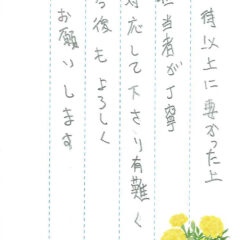 待以上に安かった上
担当者が丁寧
対応して下さり有難く
今後もよろしく
お願いします